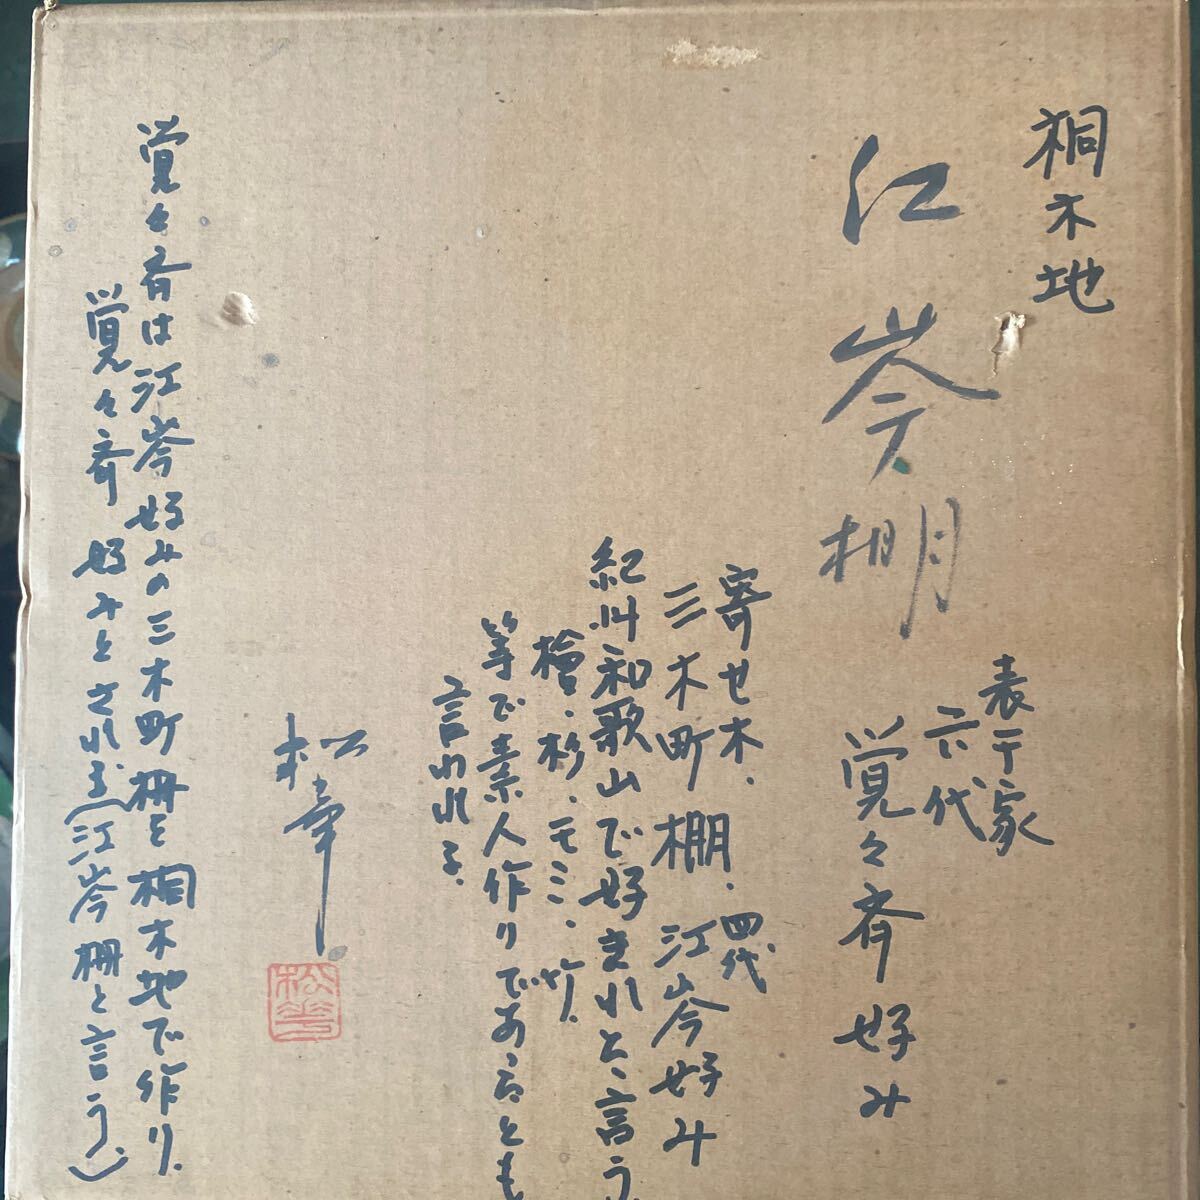 桐木地
江岑棚
表千家
六代
覚々斉好み
寄せ木、
三木町棚、四代
江岑好み
紀州和歌山で好まれと、言う、
檜、杉、モミ、竹、
等で素人作りであるとも
言われる、
松華
松華
覚々斉は江岑好みの三木町棚を桐木地で作り、
覚々斉好みとされる(江岑棚と言う、)